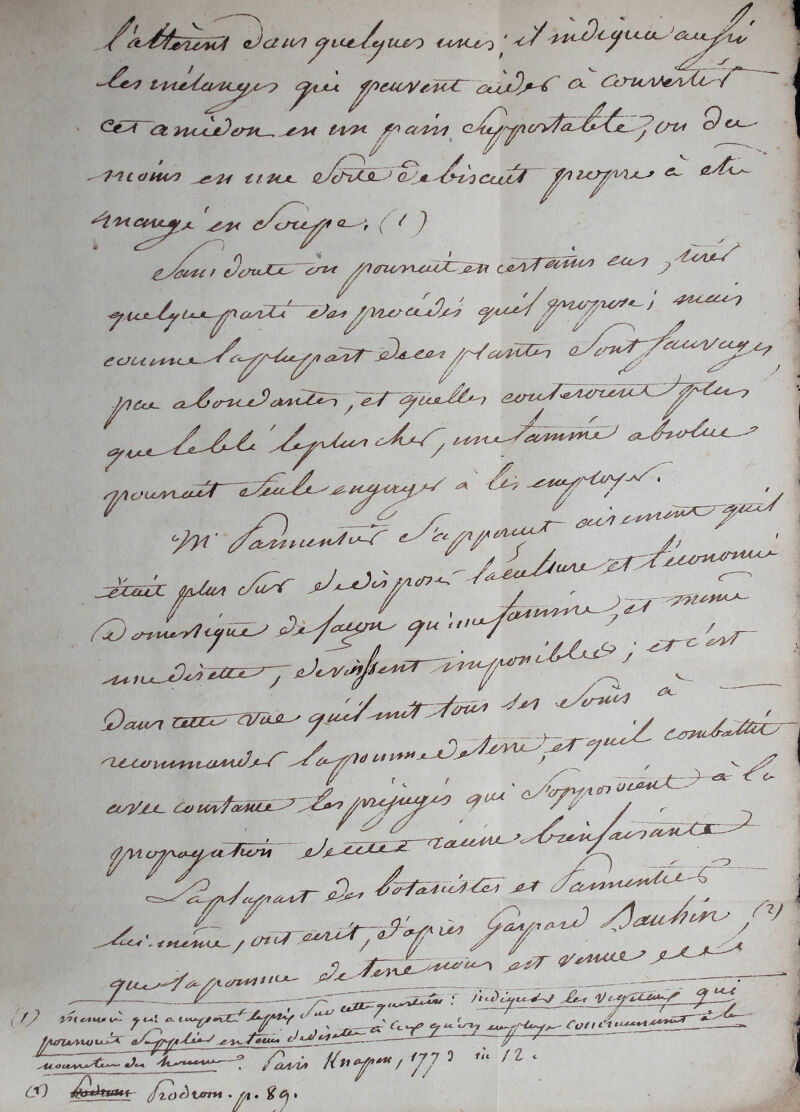 l'altèrent dans quelques unes; il indiqua aussi
les mélanges qui peuvent aider à convertir
cet amidon en un pain supportable, ou du
moins en une sorte de biscuit propre à être
mangé en soupe. (1)
Sans doute on pourrait en certains cas, tirer
quelque parti des procédés qu'il propose; mais
comme la plupart de ces plantes sont sauvages,
peu abondantes, et quelles couteroient plus
que le blé le plus cher, une famine absolue
pourrait seule engager à les employer.
Mr Parmentier s'apperçut aisement qu'il
était plus sur de disposer la culture et l'économie
domestique de façon qu'une famine, et même
une disette, devinssent impossibles; et c'est
dans cette vue qu'il mit tous ses soins à
recommander la pomme de terre, et qu'il combattit
avec constance les préjugés qui s'opposoient à la
propagation de cette racine bienfaisante
La plupart des botanistes et Parmentier
lui-même, ont écrit, d'après Gaspard Bauhin, (2)
que la pomme de terre nous est venue de
(1) Memoire qui a remporté le prix sur cette question: indiquer les végétaux qui
pourroient suppléer en tems de disette à ceux qu'on employe communement à la
nourriture des hommes. Paris Knapen, 1773 in 12.
(2) Prodrom Prodrom. p. 89.